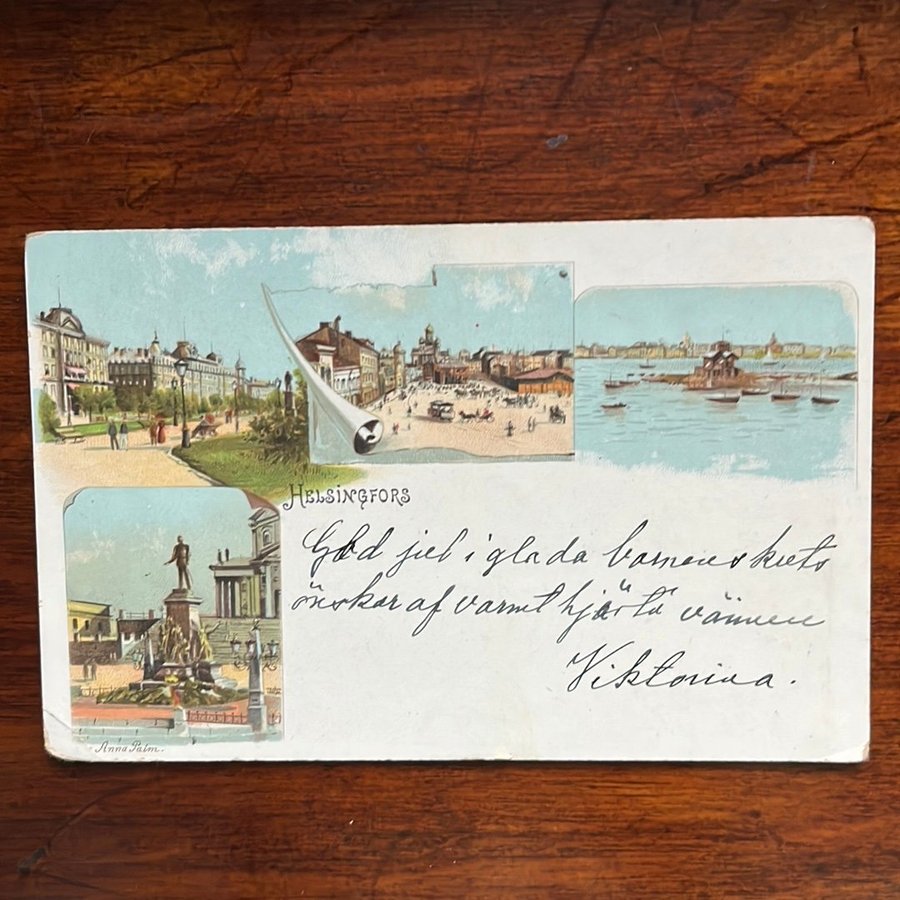 HELSINGFORS
God jul i glada barnens krets
önskar af varmt hjärta vännen
Viktorina.
Anna Palm.